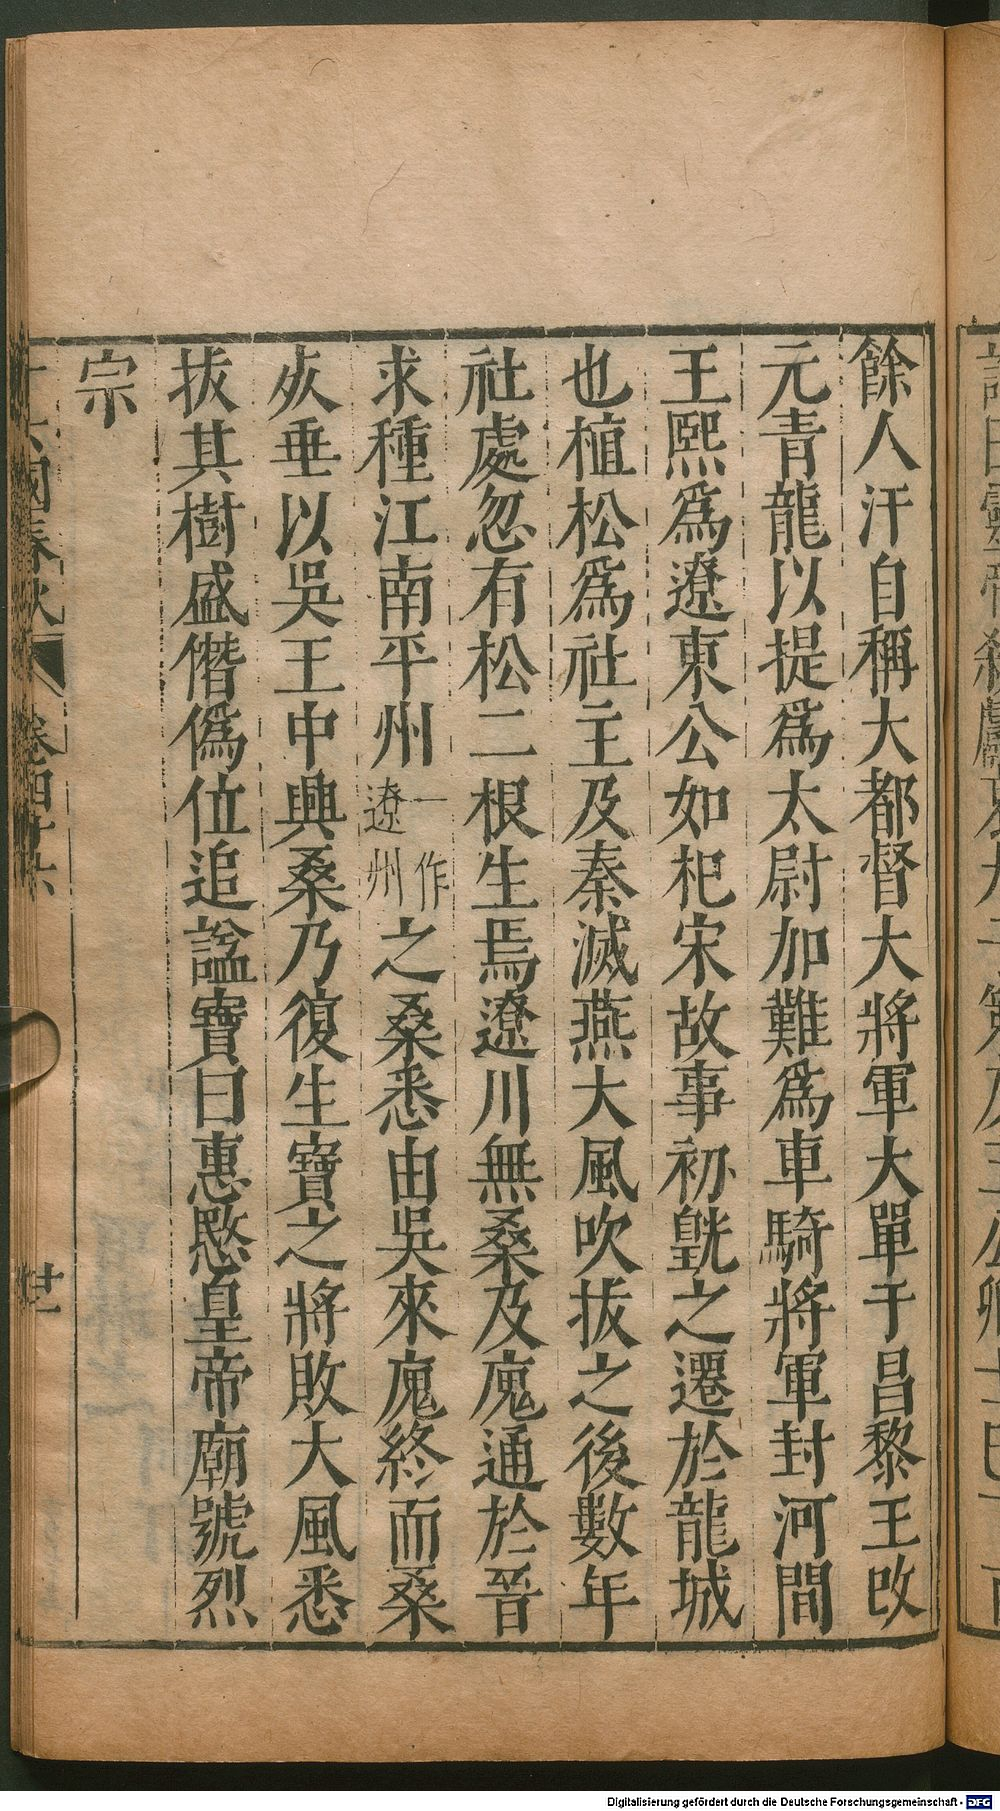 餘人汗自稱大都督大將軍大單于昌黎王改
元青龍以提爲太尉加難爲車騎將軍封河間
王熙爲遼東公如杞宋故事初皝之遷於龍城
也植松爲社主及秦滅燕大風吹拔之後數年
社處忽有松二根生焉遼川無桑及廆通於晉
求種江南平州一作遼州之桑悉由吳來廆終而桑
灰垂以吳王中興桑乃復生寶之將敗大風悉
拔其樹盛僭僞位追諡寶曰惠愍皇帝廟號烈
宗
十六國春秋 卷四十六 廿二
Digitalisierung gefördert durch die Deutsche Forschungsgemeinschaft - DFG